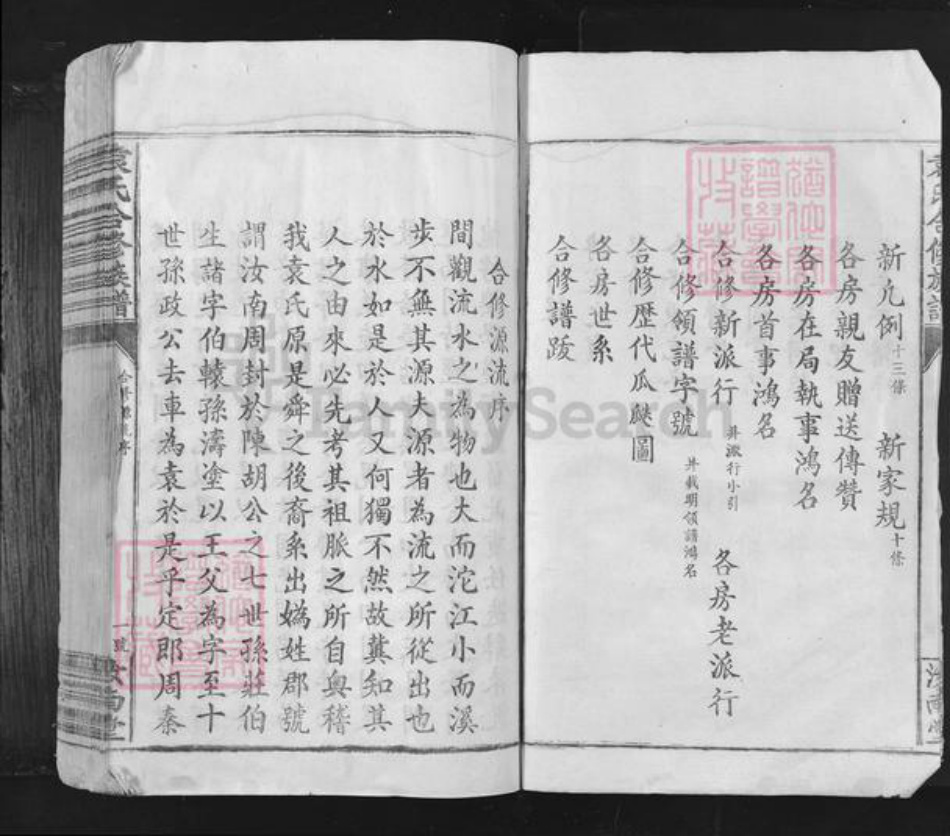 袁氏合修族譜
汝南堂
新凡例十三條 新家規十條
各房親友贈送傳贊
各房在局執事鴻名
各房首事鴻名
合修新派行 并派行小引 各房老派行
合修領譜字號 并載明領譜鴻名
合修歷代瓜瓞圖
各房世系
合修譜跋
合修源流序
間觀流水之為物也大而沱江小而溪
步不無其源夫源者為流之所從出也
於水如是於人又何獨不然故冀知其
人之由來必先考其祖脈之所自與稽
我袁氏原是舜之後裔系出媯姓郡號
謂汝南周封於陳胡公之七世孫莊伯
生諸字伯轅孫濤塗以王父為字至十
世孫政公去車為袁於是乎定郎周秦
袁氏合修族譜
合修源流序
一號
汝南堂
FamilySearch